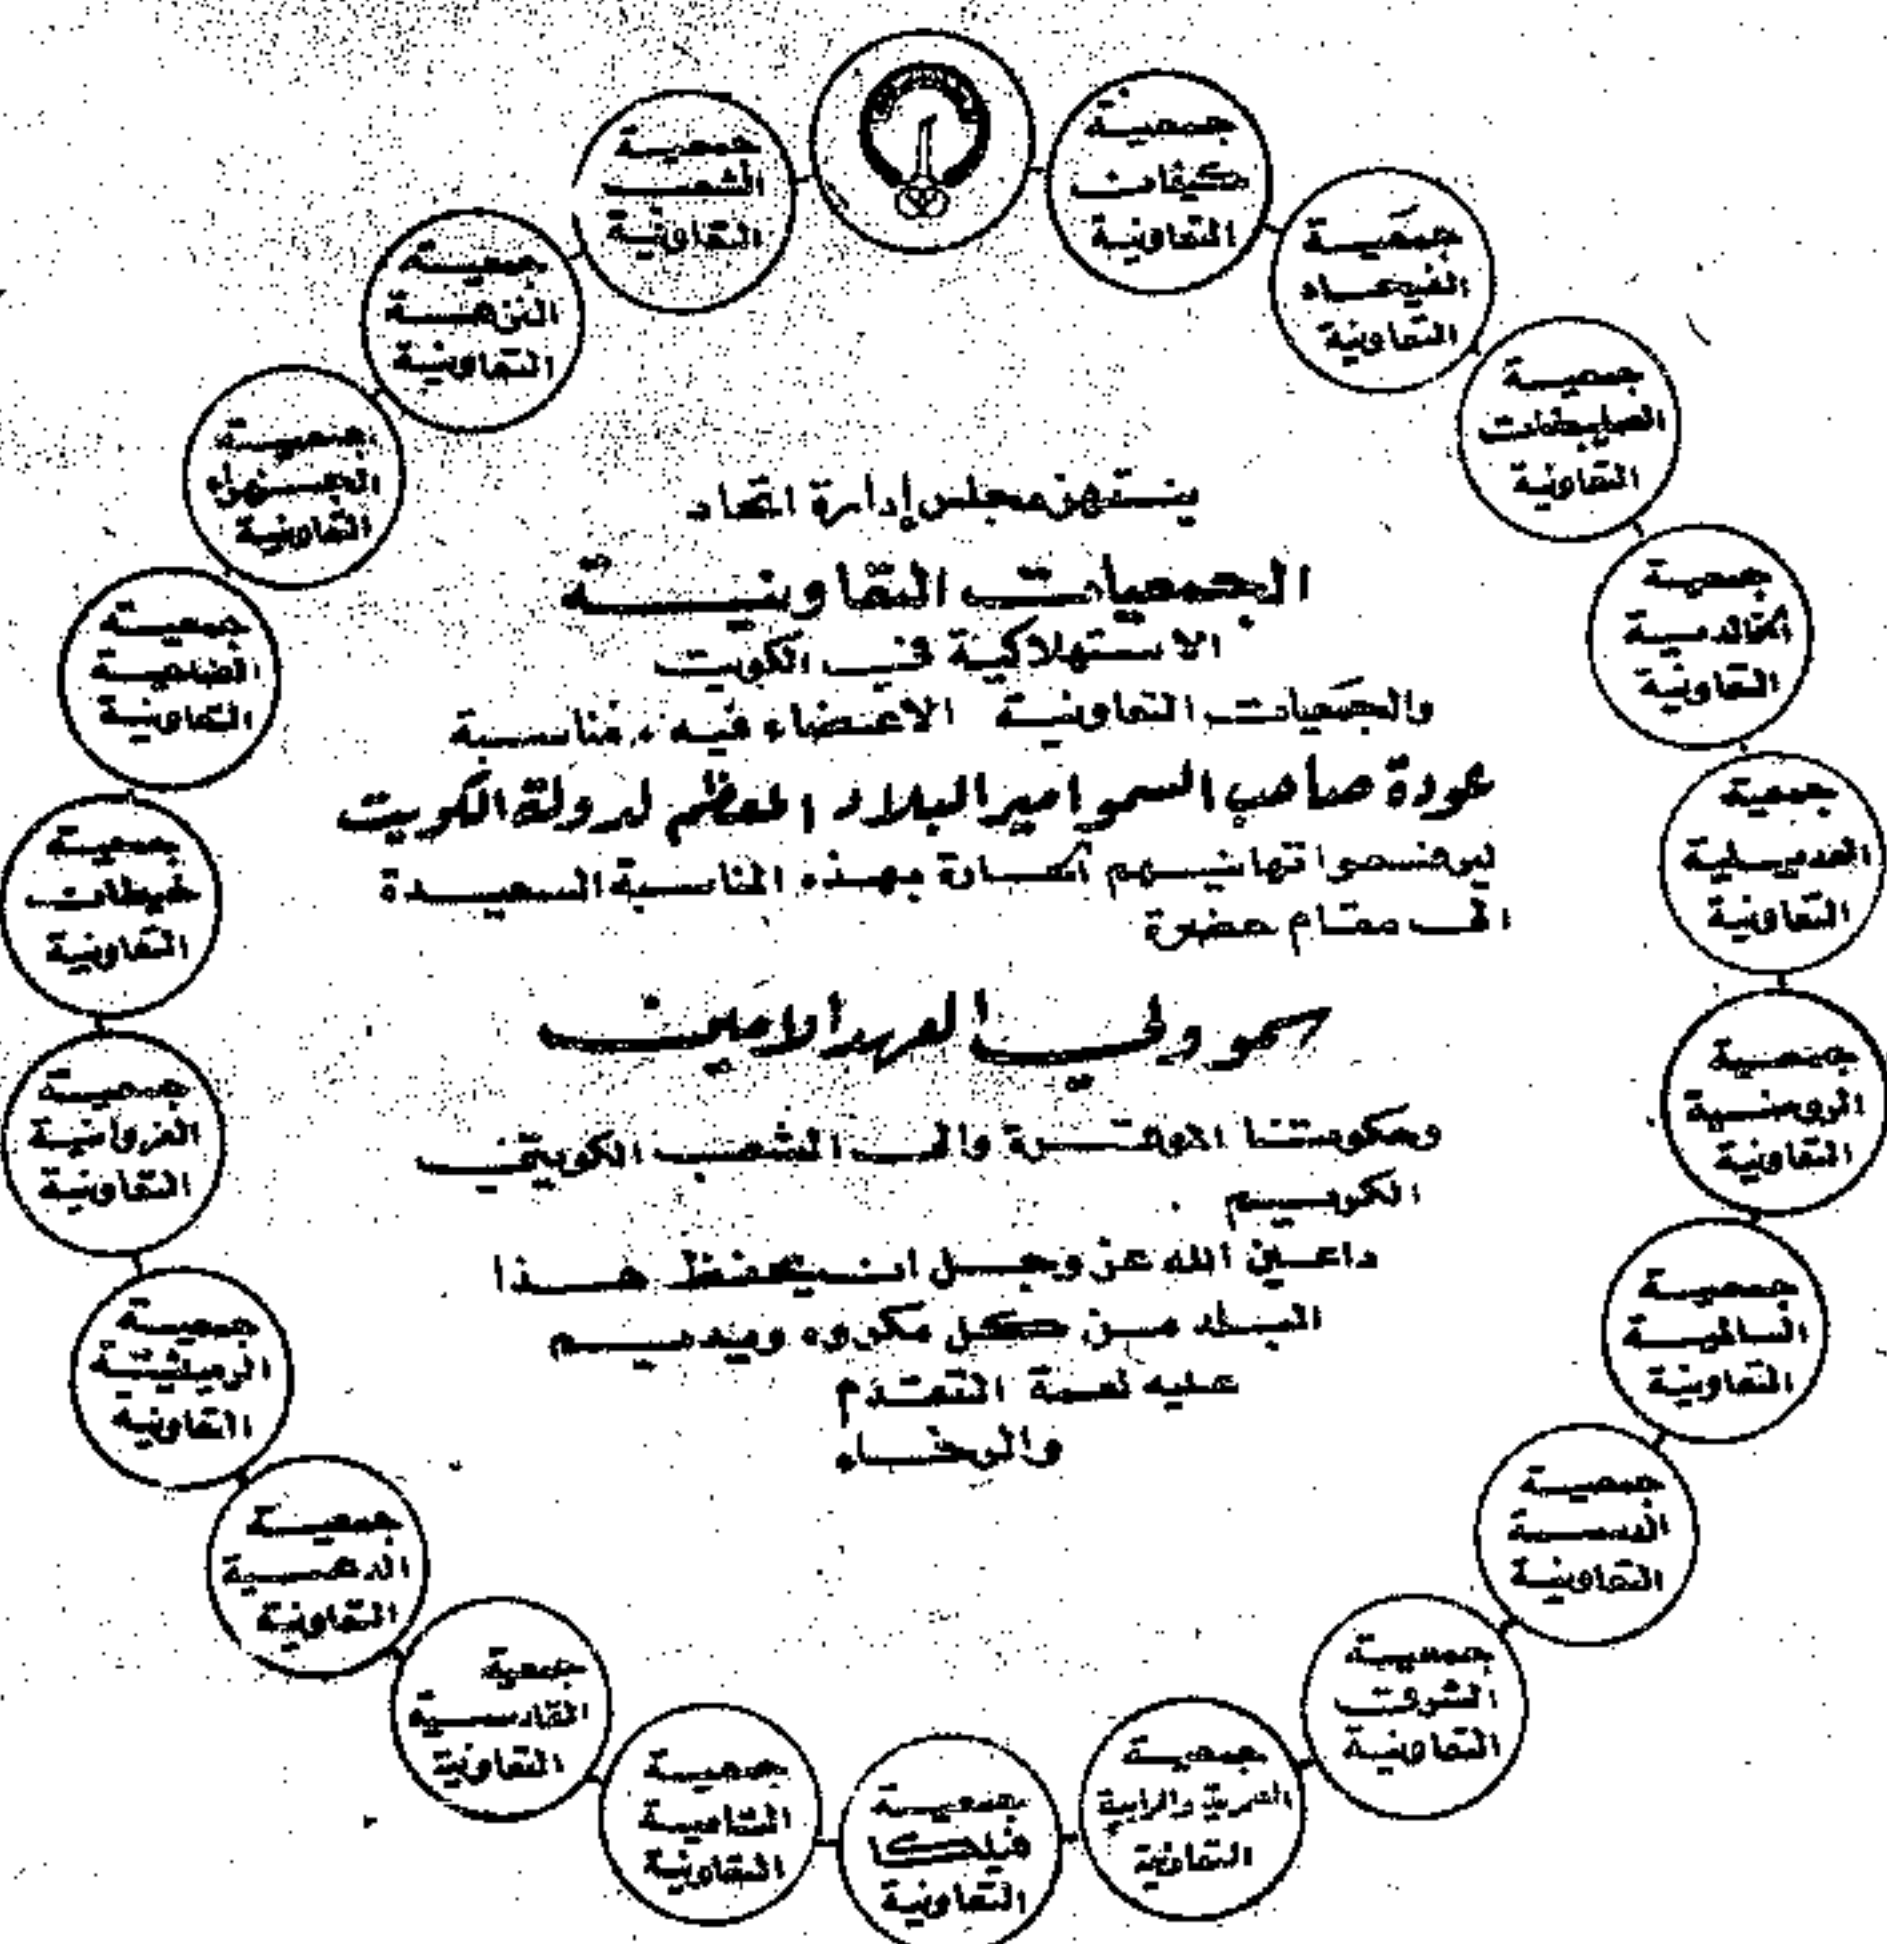 جمعية
كيفان
التعاونية
جمعية
الفيحاء
التعاونية
جمعية
الصليبخات
التعاونية
جمعية
الخالدية
التعاونية
جمعية
العديلية
التعاونية
جمعية
الروضة
التعاونية
جمعية
السالمية
التعاونية
جمعية
الدسمة
التعاونية
جمعية
الشرق
التعاونية
جمعية
العمرية والرابية
التعاونية
جمعية
فيلكا
التعاونية
جمعية
الشامية
التعاونية
جمعية
القادسية
التعاونية
جمعية
الدعية
التعاونية
جمعية
الرميثية
التعاونية
جمعية
الفروانية
التعاونية
جمعية
خيطان
التعاونية
جمعية
الضاحية
التعاونية
جمعية
الجهراء
التعاونية
جمعية
النزهة
التعاونية
جمعية
الشعب
التعاونية
ينتهز مجلس إدارة اتحاد
الجمعيات التعاونية
الاستهلاكية في الكويت
والجمعيات التعاونية الاعضاء فيه مناسبة
عودة صاحب السمو امير البلاد المعظم لدولة الكويت
ليرفعوا تهانيهم الحارة بهذه المناسبة السعيدة
الى مقام حضرة
سمو ولي العهد الامين
وحكومتنا الموقرة والى الشعب الكويتي
الكريم .
داعين الله عز وجل ان يحفظ هذا
البلد من كل مكروه ويديم
عليه نعمة التقدم
والرخاء